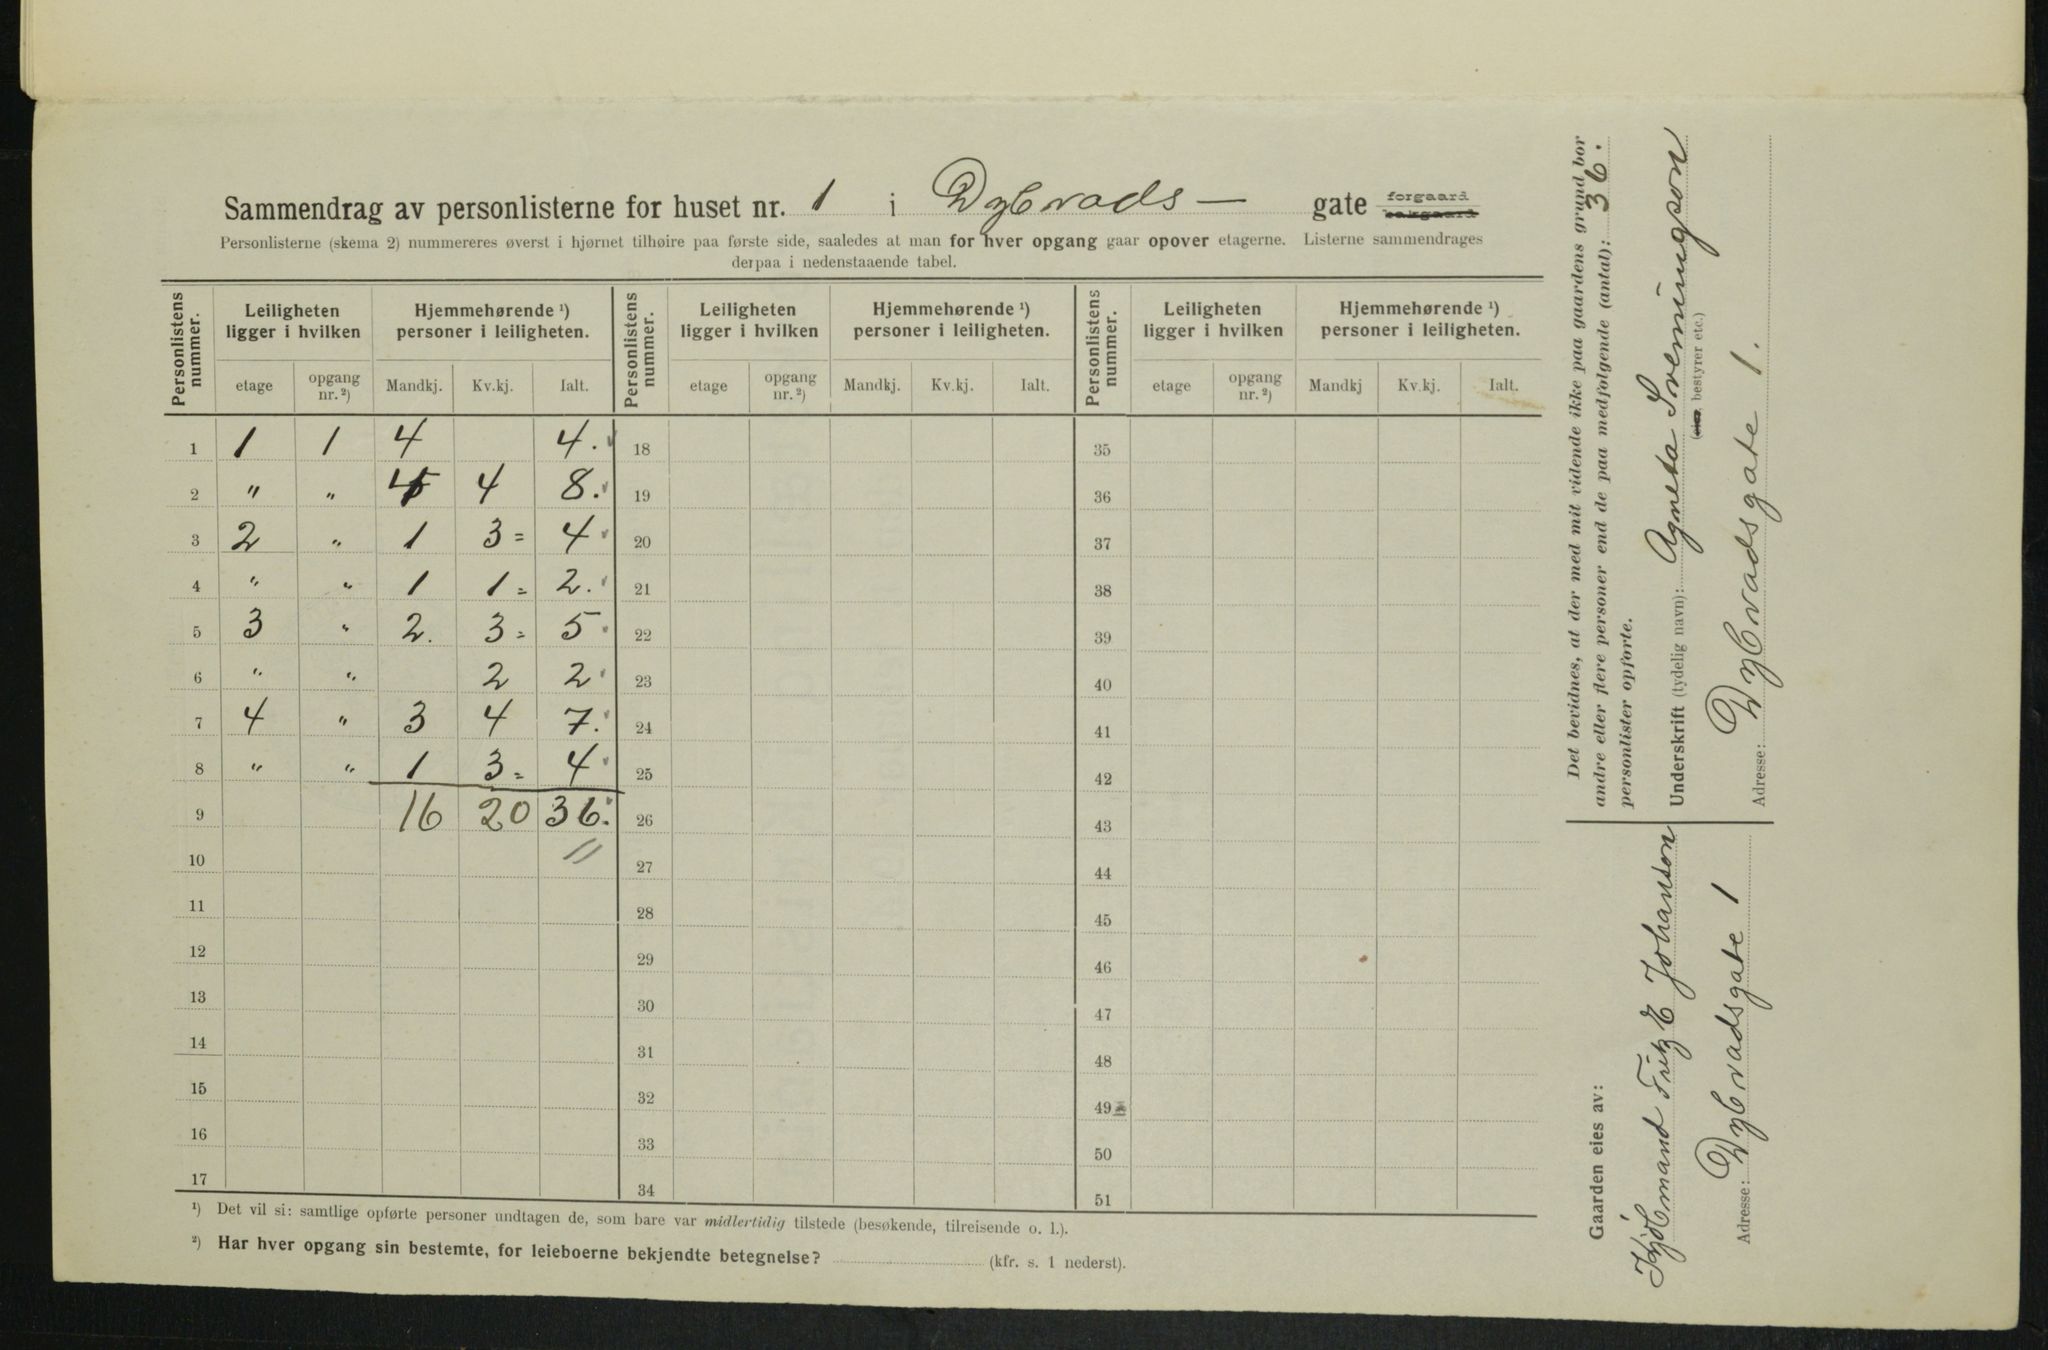 Sammendrag av personlisterne for huset nr. 1 i Dybvads- gate forgaard bakgaard
Personlisterne (skema 2) nummereres øverst i hjørnet tilhøire paa første side, saaledes at man for hver opgang gaar opover etagerne. Listerne sammendrages
derpaa i nedenstaaende tabel.
Personlistens nummer. Leiligheten ligger i hvilken Hjemmehørende ¹) personer i leiligheten. Personlistens nummer. Leiligheten ligger i hvilken Hjemmehørende ¹) personer i leiligheten. Personlistens nummer. Leiligheten ligger i hvilken Hjemmehørende ¹) personer i leiligheten.
etage opgang nr. ²) Mandkj. Kv.kj. Ialt. etage opgang nr. ²) Mandkj. Kv.kj. Ialt. etage opgang nr. ²) Mandkj Kv.kj. Ialt.
1 1 1 4 4. 18 35
2 " " 4 4 8. 19 36
3 2 " 1 3 = 4 20 37
4 " " 1 1 = 2. 21 38
5 3 " 2. 3 = 5 22 39
6 " " 2 2 23 40
7 4 " 3 4 7. 24 41
8 " " 1 3 = 4 25 42
9 16 20 36. 26 43
10 27 44
11 28 45
12 29 46
13 30 47
14 31 48
15 32 49
16 33 50
17 34 51
¹) Det vil si: samtlige opførte personer undtagen de, som bare var midlertidig tilstede (besøkende, tilreisende o. l.).
²) Har hver opgang sin bestemte, for leieboerne bekjendte betegnelse? (kfr. s. 1 nederst).
Det bevidnes, at der med mit vidende ikke paa gaardens grund bor
andre eller flere personer end de paa medfølgende (antal): 36.
personlister opførte.
Underskrift (tydelig navn): Agneta Sveningson
(eier, bestyrer etc.)
Adresse: Dybvadsgate 1.
Gaarden eies av:
Kjöbmand Fritz E Johanson
Adresse: Dybvadsgate 1